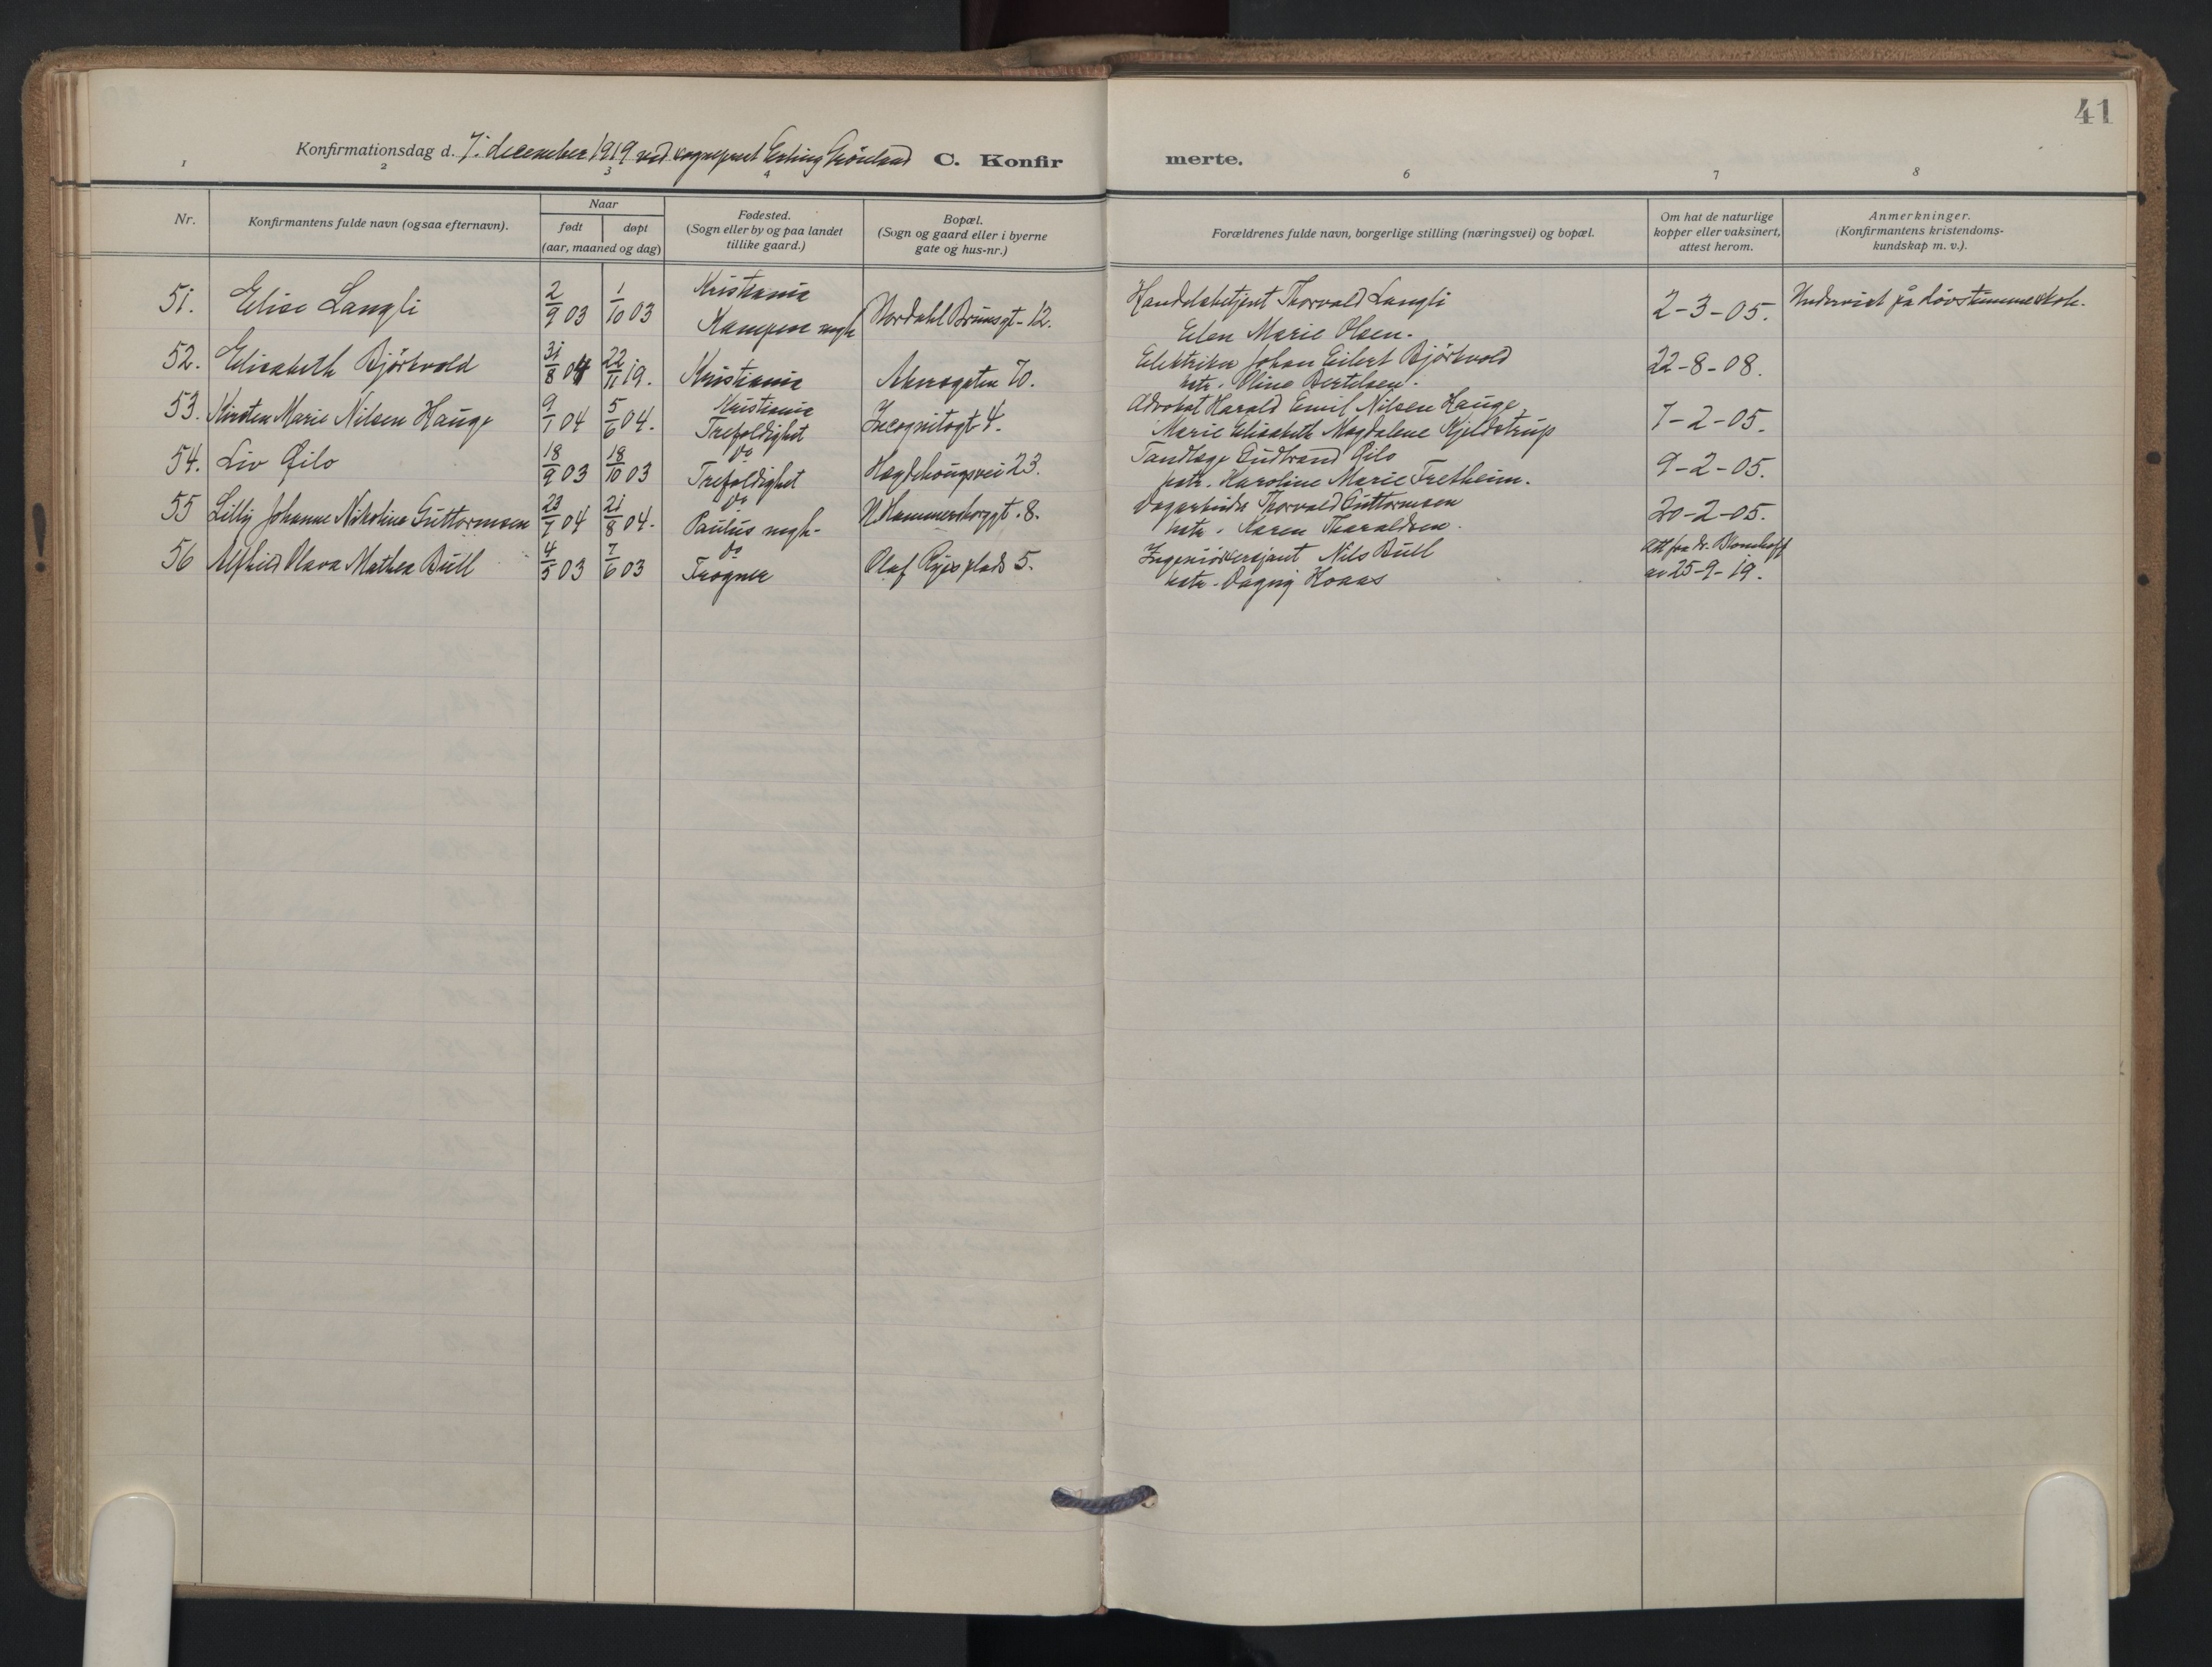 41
Konfirmationsdag d. 7. december 1919 ved sogneprest Erling Grönland C. Konfirmerte.
1 2 3 4 6 7 8
Nr.
Konfirmantens fulde navn (ogsaa efternavn).
Naar
født døpt
(aar, maaned og dag)
Fødested.
(Sogn eller by og paa landet
tillike gaard.)
Bopæl.
(Sogn og gaard eller i byerne
gate og hus-nr.)
Forældrenes fulde navn, borgerlige stilling (næringsvei) og bopæl.
Om hat de naturlige
kopper eller vaksinert,
attest herom.
Anmerkninger.
(Konfirmantens kristendoms-
kundskap m. v.).
51. Elise Langli 2/9 03 1/10 03 Kristiania
Kampen mgh Nordahl Brunsgt. 12. Handelsbetjent Thorvald Langli
Elen Marie Olsen. 2-3-05. Undervist på Lövstumme skole.
52. Elisabeth Björkvold 31/8 04 22/11 19. Kristiania Akersgaten 70. Elektriker Johan Eilert Björkvold
hstr. Oline Bertelsen. 22-8-08.
53. Kirsten Marie Nilsen Hauge 9/1 04 5/6 04. Kristiania
Trefoldighet Incognitogt 4. Advokat Harald Emil Nilsen Hauge,
Marie Elisabeth Magdalene Kjeldstrup 7-2-05.
54. Liv Öilo 18/9 03 18/10 03 do
Trefoldighet Hægdehougsvei 23. Tandlæge Gudbrand Öilo
hstr. Karoline Marie Tretheim. 9-2-05.
55 Lilly Johanne Nikoline Guttormsen 23/7 04 21/8 04. do
Paulus mgh. N Hammersborggt. 8. Dagarbeider Thorvald Guttormsen
hstr. Karen Tharaldsen. 20-2-05.
56 Alfhild Olava Mathea Bull 4/5 03 7/6 03 do
Frogner Olaf Ryes plads 5. Ingeniörsersjant Nils Bull
hstr. Dagny Hoaas Att fra dr. Blomhoff
av 25-9-19.